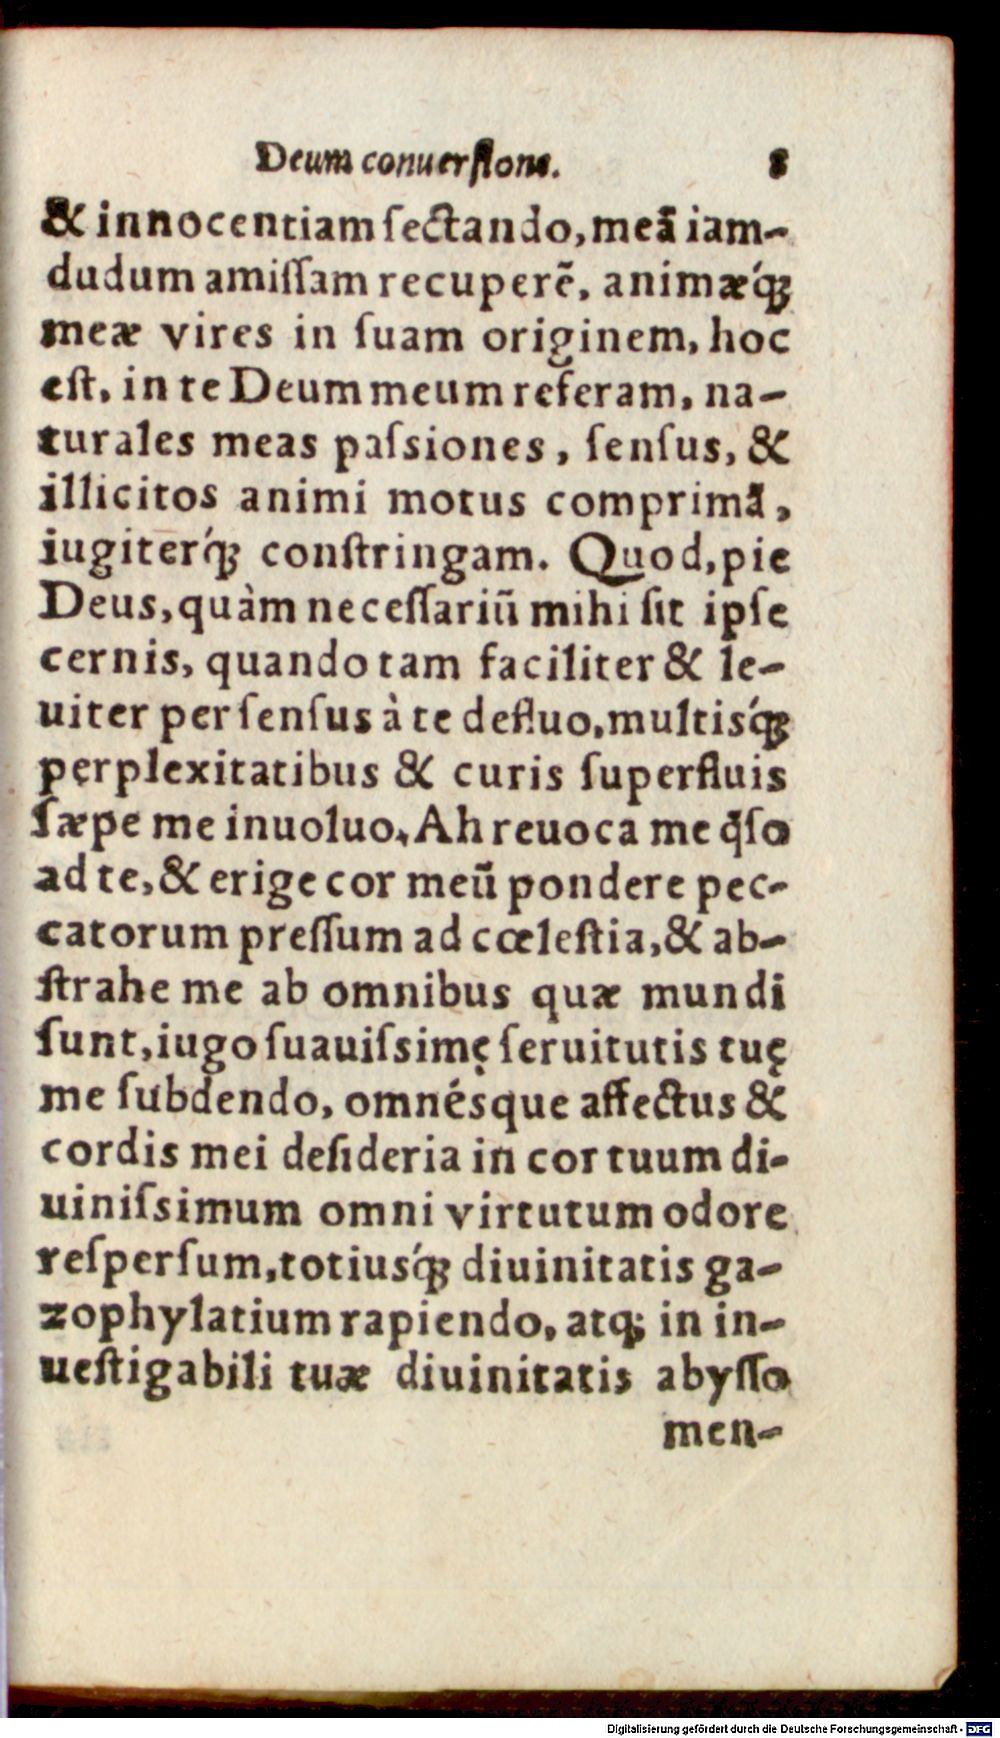 Deum conuerſione. 8
& innocentiam ſectando, meã iam-
dudum amiſſam recuperẽ, animæq́ꝫ
meæ vires in ſuam originem, hoc
eſt, in te Deum meum referam, na-
turales meas paſsiones, ſenſus, &
illicitos animi motus comprimã,
iugiterq́ꝫ conſtringam. Quod, pie
Deus, quàm neceſſariũ mihi ſit ipſe
cernis, quando tam faciliter & le-
uiter per ſenſus à te defluo, multisq́ꝫ
perplexitatibus & curis ſuperfluis
ſæpe me inuoluo. Ah reuoca me q̃ſo
ad te, & erige cor meũ pondere pec-
catorum preſſum ad cœleſtia, & ab-
ſtrahe me ab omnibus quæ mundi
ſunt, iugo ſuauiſsimę ſeruitutis tuę
me ſubdendo, omnésque affectus &
cordis mei deſideria in cor tuum di-
uiniſsimum omni virtutum odore
reſperſum, totiusq́ꝫ diuinitatis ga-
zophylatium rapiendo, atqꝫ in in-
ueſtigabili tuæ diuinitatis abyſſo
men-
Digitalisierung gefördert durch die Deutsche Forschungsgemeinschaft - DFG